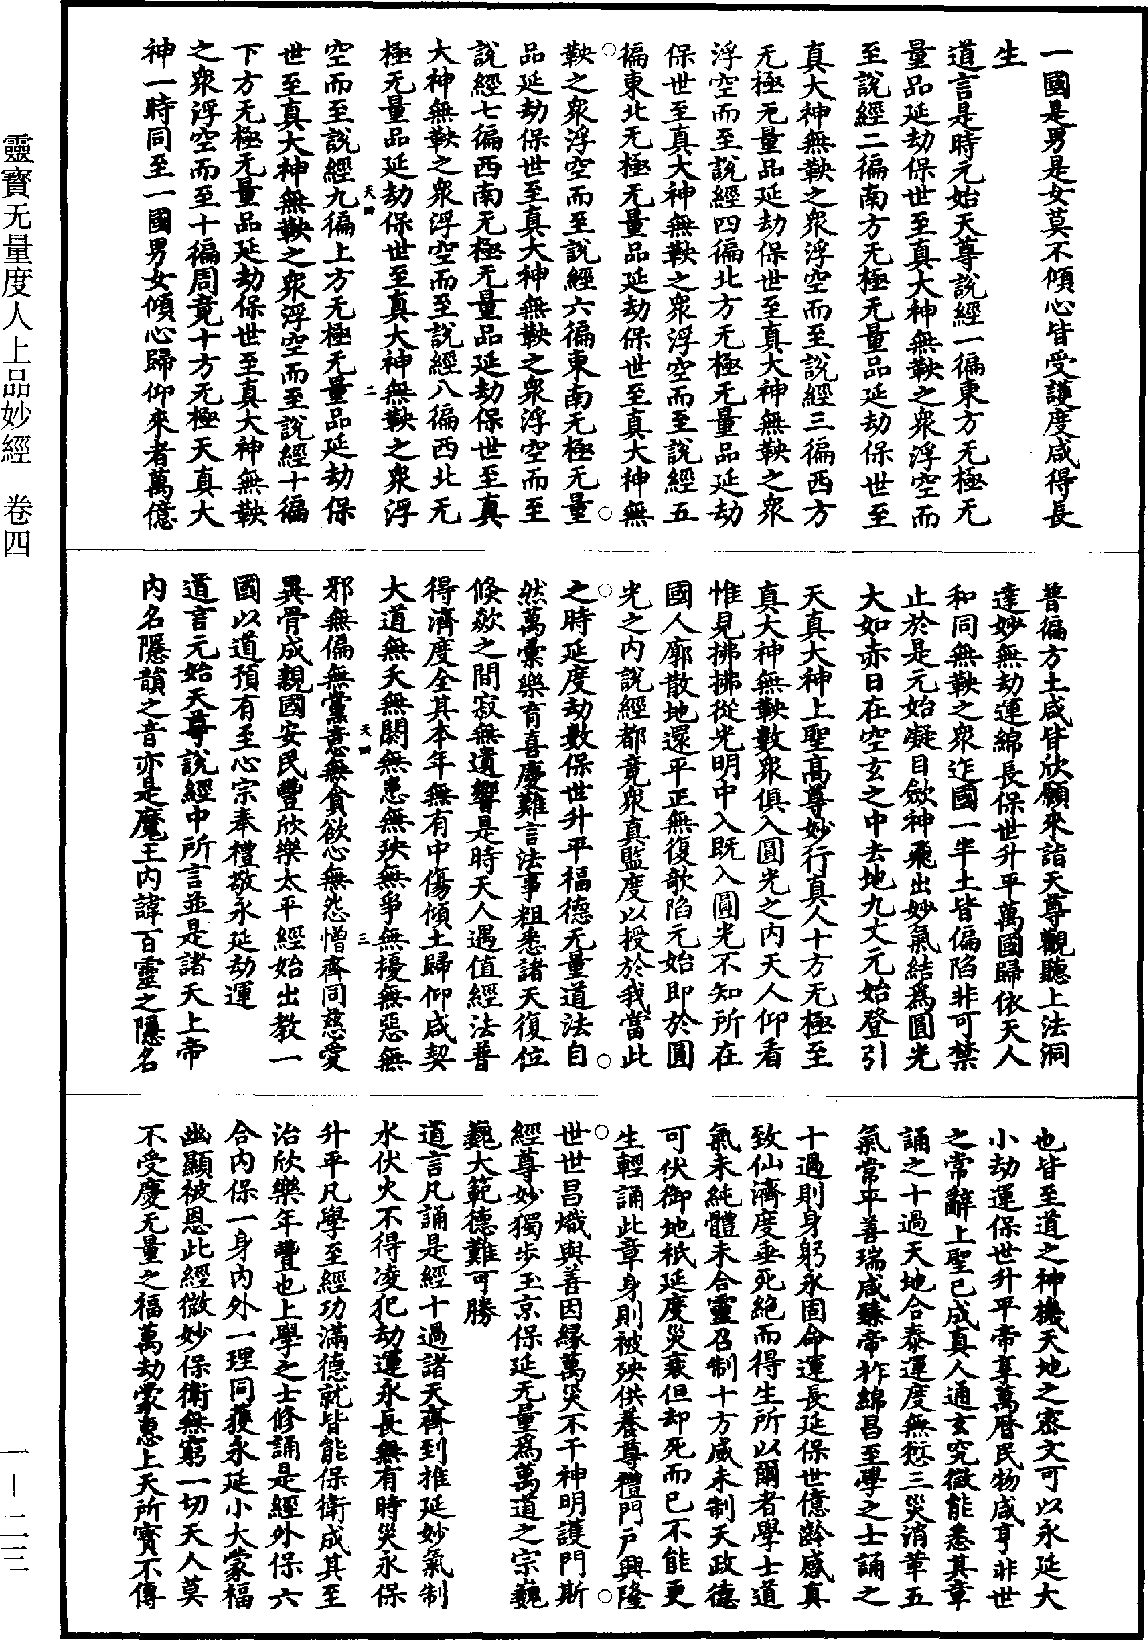 一國是男是女莫不傾心皆受護度咸得長
生
道言是時元始天尊說經一徧東方无極无
量品延劫保世至真大神無鞅之衆浮空而
至說經二徧南方无極无量品延劫保世至
真大神無鞅之衆浮空而至說經三徧西方
无極无量品延劫保世至真大神無鞅之衆
浮空而至說經四徧北方无極无量品延劫
保世至真大神無鞅之衆浮空而至說經五
徧東北无極无量品延劫保世至真大神無
鞅之衆浮空而至說經六徧東南无極无量
品延劫保世至真大神無鞅之衆浮空而至
說經七徧西南无極无量品延劫保世至真
大神無鞅之衆浮空而至說經八徧西北无
極无量品延劫保世至真大神無鞅之衆浮
天四 二
空而至說經九徧上方无極无量品延劫保
世至真大神無鞅之衆浮空而至說經十徧
下方无極无量品延劫保世至真大神無鞅
之衆浮空而至十徧周竟十方无極天真大
神一時同至一國男女傾心歸仰來者萬億
普徧方土咸皆欣願來詣天尊觀聽上法洞
達妙無劫運綿長保世升平萬國歸依天人
和同無鞅之衆迮國一半土皆偏陷非可禁
止於是元始凝目斂神飛出妙氣結爲圓光
大如赤日在空玄之中去地九丈元始登引
天真大神上聖高尊妙行真人十方无極至
真大神無鞅數衆俱入圓光之內天人仰看
惟見拂拂從光明中入既入圓光不知所在
國人廓散地還平正無復欹陷元始即於圓
光之內說經都竟衆真監度以授於我當此
之時延度劫數保世升平福德无量道法自
然萬彙樂育喜慶難言法事粗悉諸天復位
倏欻之間寂無遺響是時天人遇值經法普
得濟度全其本年無有中傷傾土歸仰咸契
大道無夭無閼無恚無殃無爭無擾無惡無
天四 三
邪無偏無黨意無貪慾心無怨憎齊同慈愛
異骨成親國安民豐欣樂太平經始出教一
國以道預有至心宗奉禮敬永延劫運
道言元始天尊說經中所言並是諸天上帝
內名隱韻之音亦是魔王內諱百靈之隱名
也皆至道之神機天地之密文可以永延大
小劫運保世升平帝享萬曆民物咸亨非世
之常辭上聖已成真人通玄究微能悉其章
誦之十過天地合泰運度無愆三災消革五
氣常平善瑞咸臻帝祚綿昌至學之士誦之
十過則身躬永固命運長延保世億齡感真
致仙濟度垂死絕而得生所以爾者學士道
氣未純體未合靈召制十方威未制天政德
可伏御地祇延度災衰但却死而已不能更
生輕誦此章身則被殃供養尊禮門戶興隆
世世昌熾與善因緣萬災不干神明護門斯
經尊妙獨步玉京保延无量爲萬道之宗巍
巍大範德難可勝
道言凡誦是經十過諸天齊到推延妙氣制
水伏火不得凌犯劫運永長無有時災永保
升平凡學至經功滿德就皆能保衛成其至
治欣樂年豐也上學之士修誦是經外保六
合內保一身內外一理同獲永延小大蒙福
幽顯被恩此經微妙保衛無窮一切天人莫
不受慶无量之福萬劫蒙惠上天所寶不傳
靈寶无量度人上品妙經 卷四
一—二三